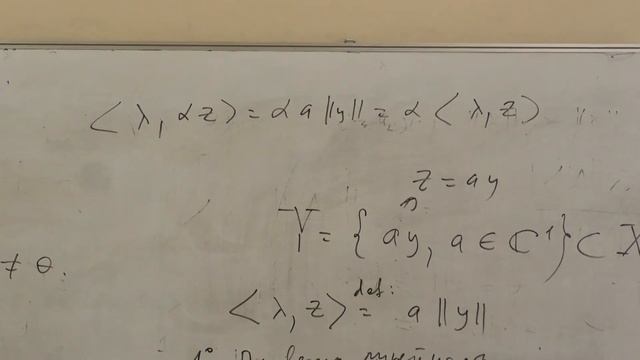 ⟨λ, αz⟩ = α a ||y|| = α ⟨λ, z⟩
z = ay
Y = { ay, a ∈ ℂ¹ } ⊂ X
≠ θ.
⟨λ, z⟩ def: = a ||y||
1°